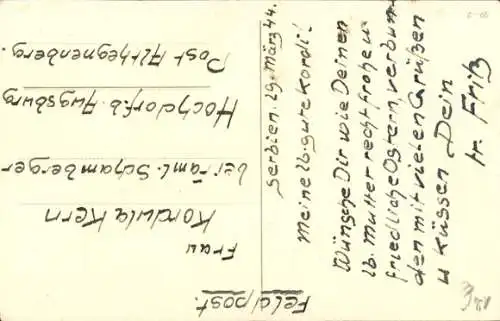 Feldpost.
Serbien. 29. März 44.
Meine lb. gute Kordi!
Wünsche Dir wie Deiner
lb. Mutter recht frohe u
friedliche Ostern, verbun-
den mit vielen Grüßen
u Küssen Dein
tr. Fritz
Frau
Kordula Kern
bei Faml. Schamberger
Hochdorf b. Augsburg
Post Althegnenberg.